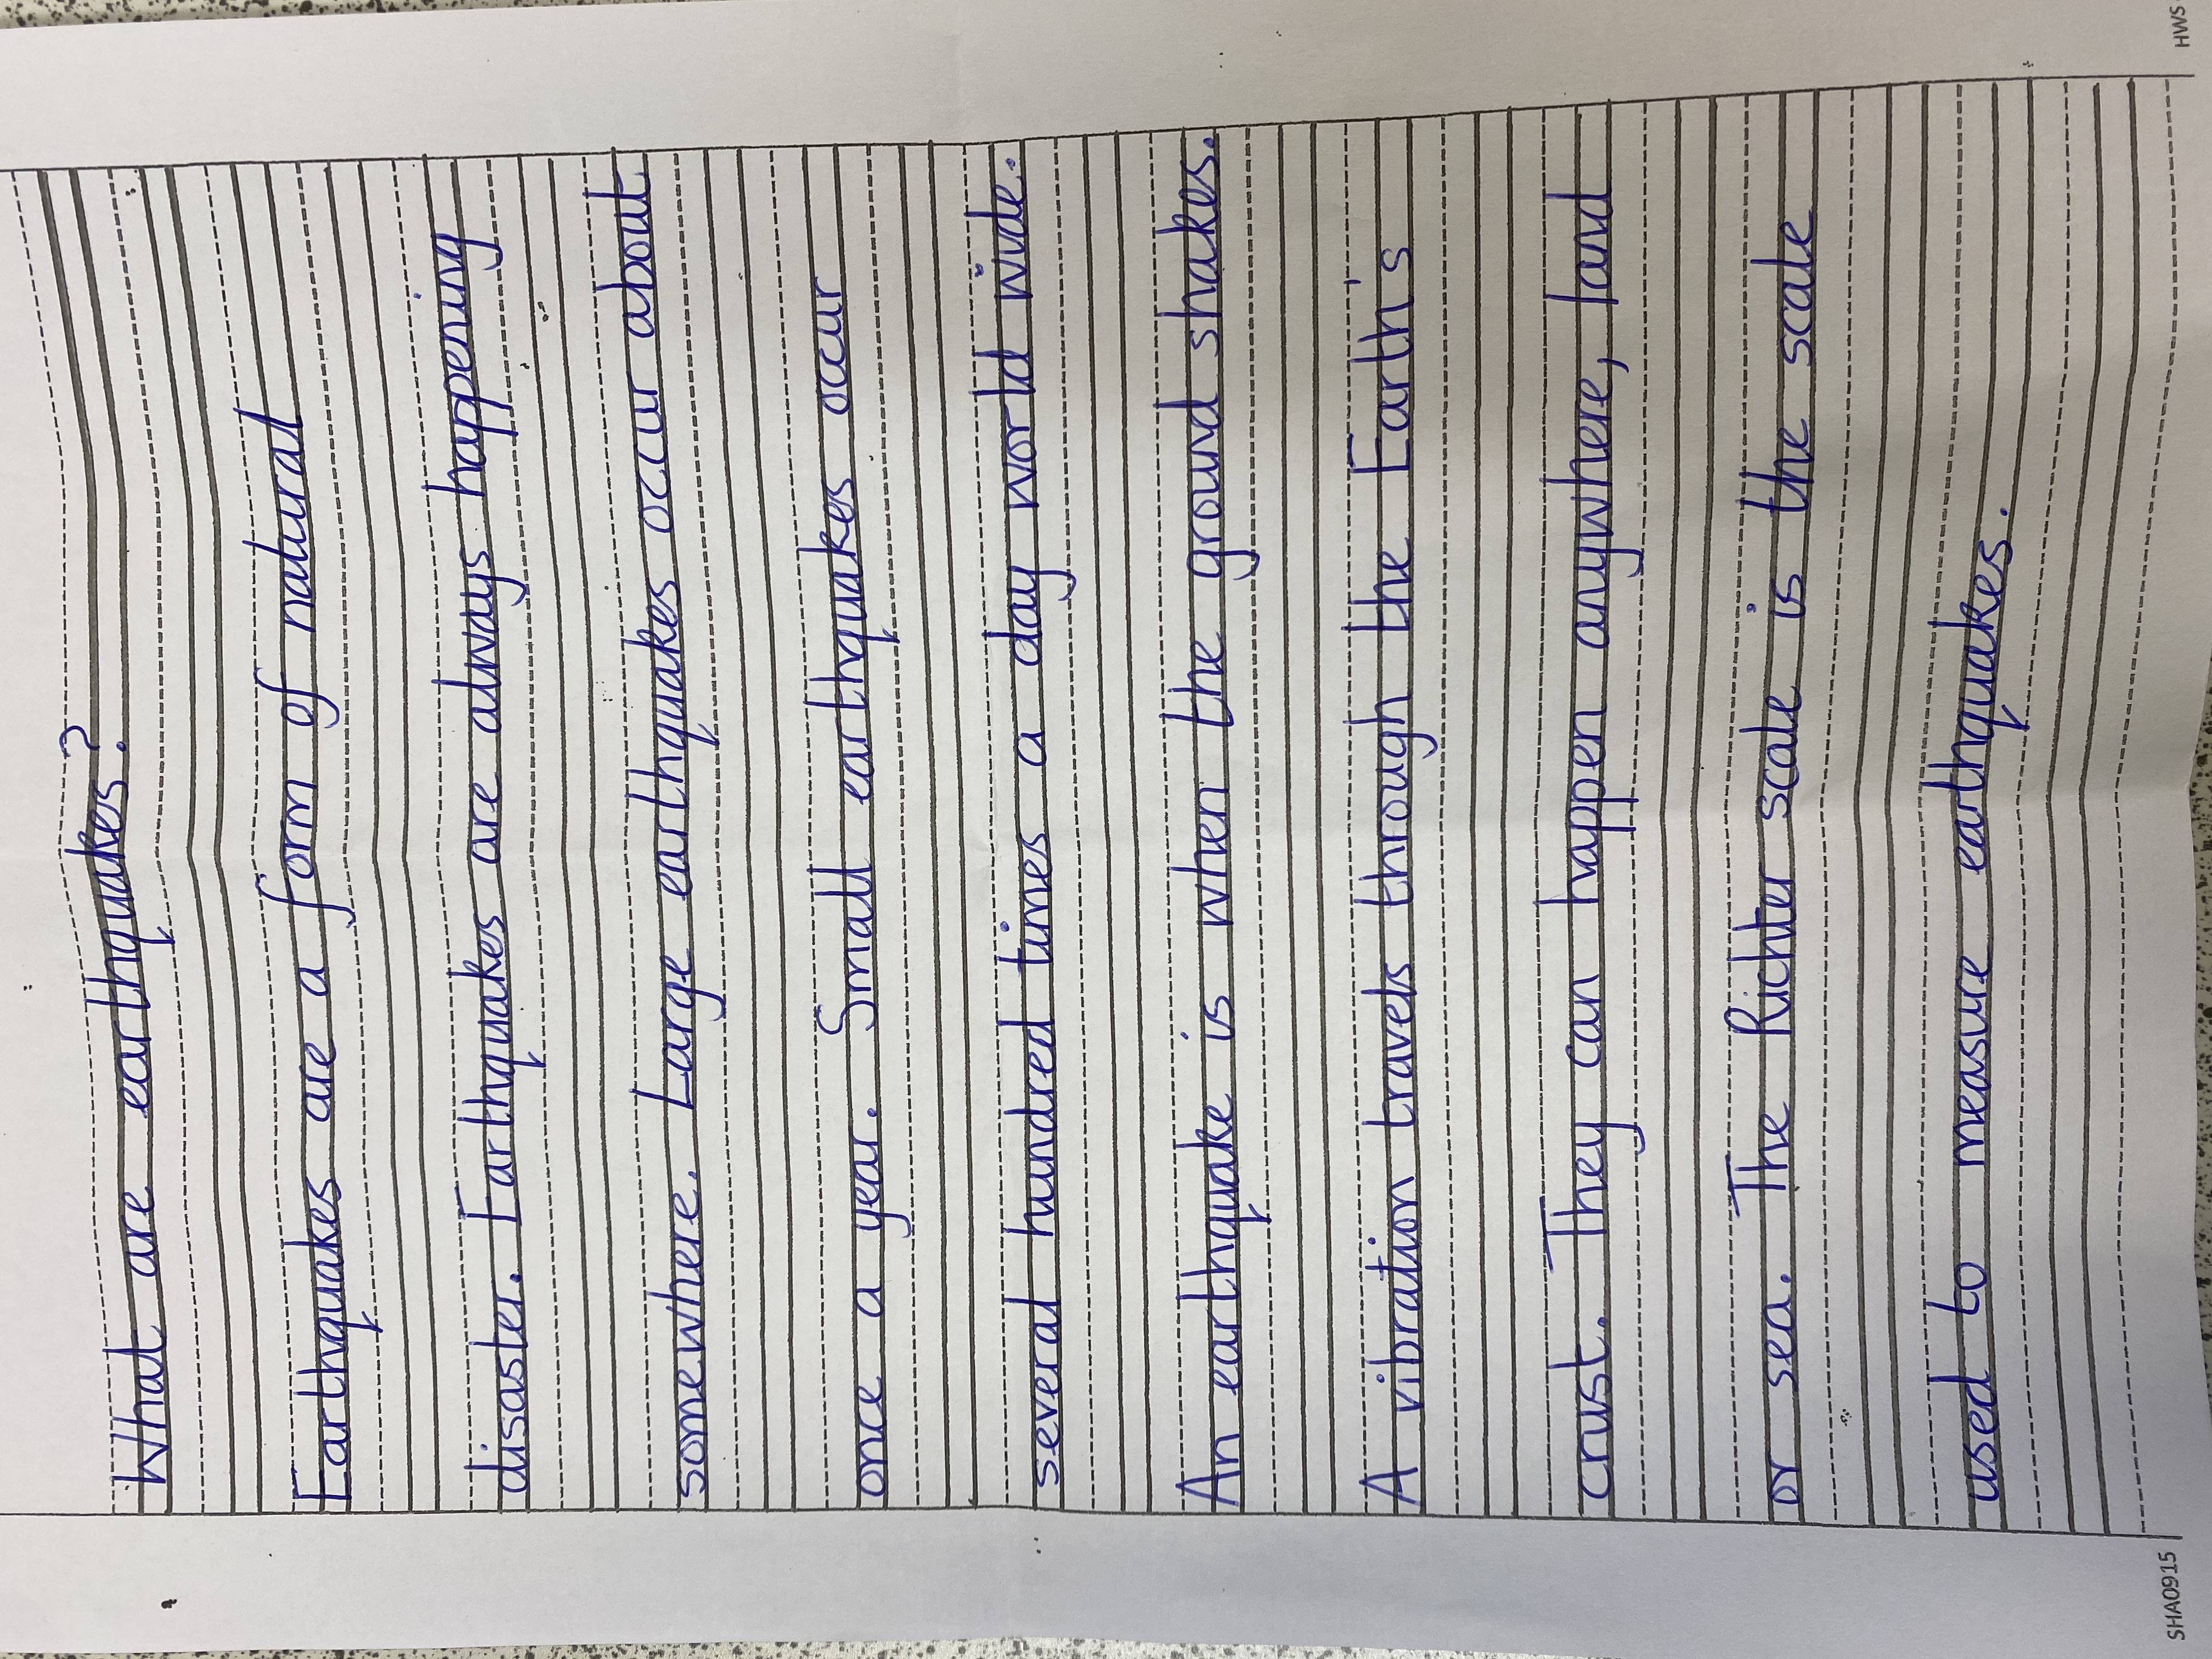 What are earthquakes?
Earthquakes are a form of natural
disaster. Earthquakes are always happening
somewhere. Large earthquakes occur about
once a year. Small earthquakes occur
several hundred times a day world wide.
An earthquake is when the ground shakes.
A vibration travels through the Earth's
crust. They can happen anywhere, land
or sea. The Richter scale is the scale
used to measure earthquakes.
SHA0915
HWS